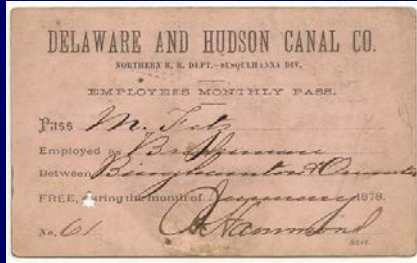 DELAWARE AND HUDSON CANAL CO.
NORTHERN R. R. DEPT.—SUSQUEHANNA DIV.
EMPLOYEES MONTHLY PASS.
Pass M.
Employed as Brakeman
Between Binghamton & Oneonta
FREE, during the month of January 1878.
No. 61 Hammond
SUPT.